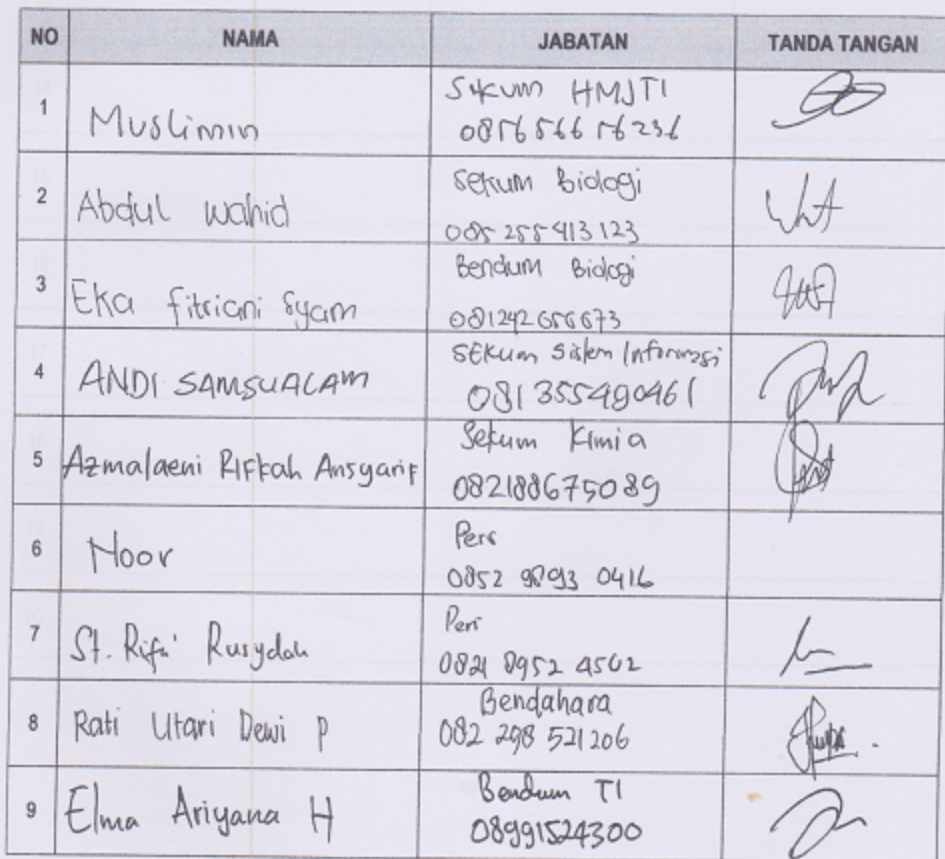 NO NAMA JABATAN TANDA TANGAN
1 Muslimin Sekum HMJTI
085656656236
2 Abdul Wahid Sekum Biologi
085 255 413 123
3 Eka Fitriani Syam Bendum Biologi
081242656673
4 ANDI SAMSUALAM SEkum Sistem Informasi
081355490461
5 Azmalaeni Rifkah Ansyarif Sekum Kimia
082188675089
6 Noor Pers
0852 9893 0416
7 St. Rifa' Rusydah Pers
0821 8952 4502
8 Rati Utari Dewi P Bendahara
082 298 521206
9 Elma Ariyana H Bendum TI
08991524300